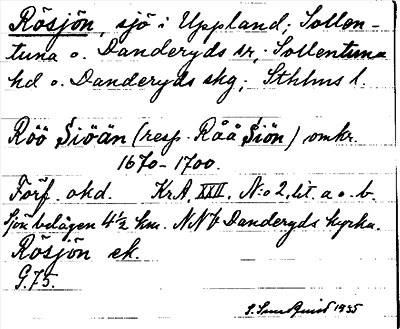 Rösjön, sjö i Uppland, Sollen-
tuna o. Danderyds sr, Sollentuna
hd o. Danderyds skg, Sthlms l.
Röö Siöän (resp. Råå Siön) omkr.
1670-1700.
Förf. okd. KrA. XXII. N:o 2, lit. a o. b.
Sjön belägen 4 1/2 km. NNV Danderyds kyrka.
Rösjön ek.
G.75.
S. Sundquist 1935